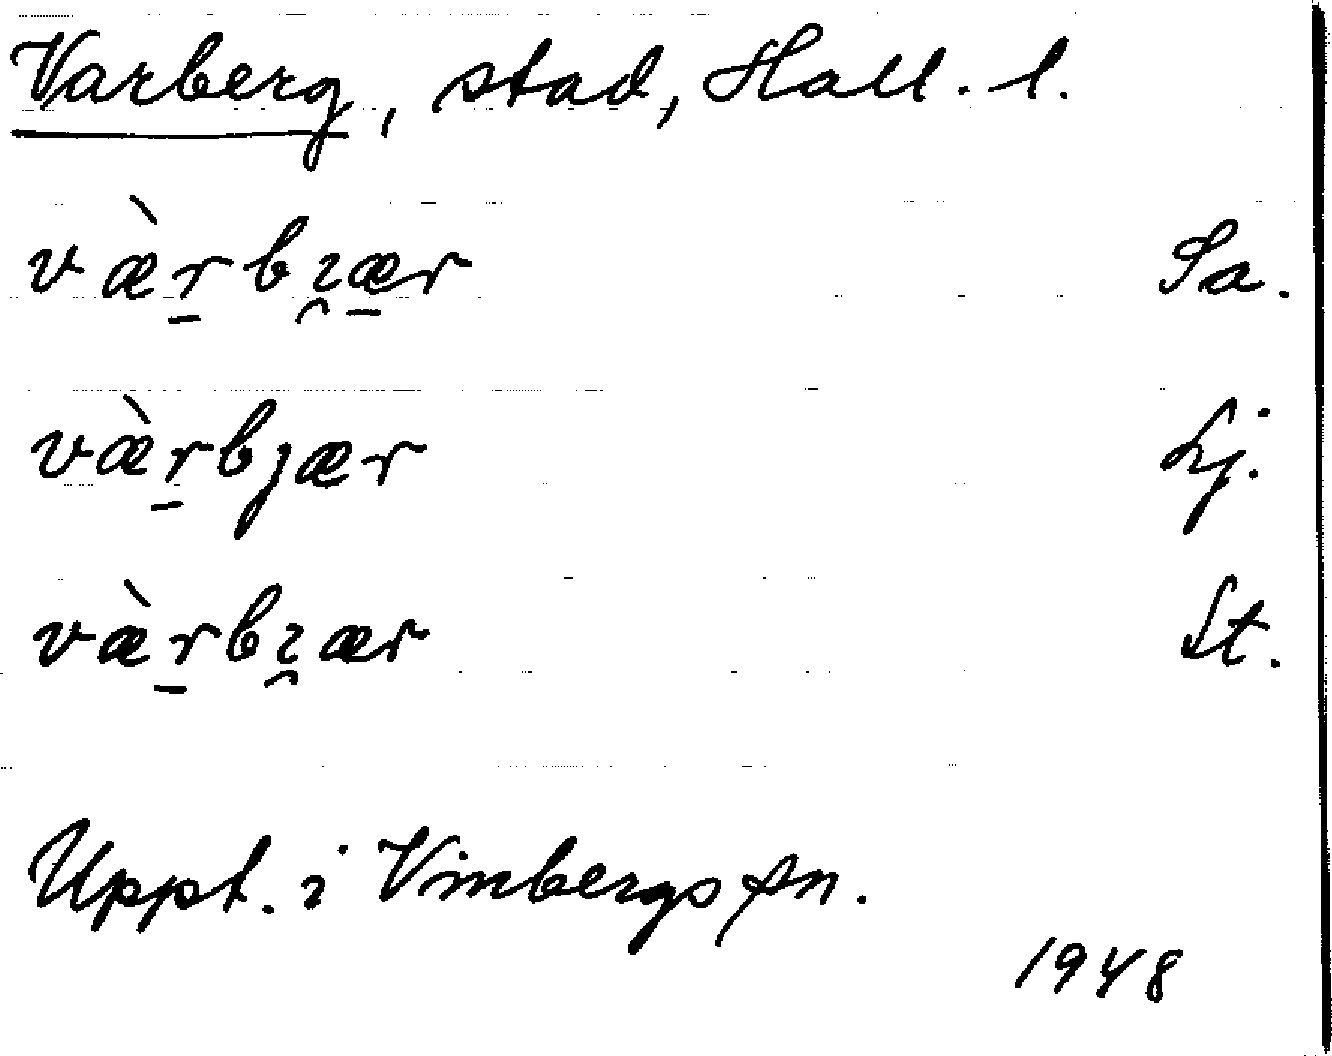 Varberg, stad, Hall. l.
væ̀r̠bı̯æ̠r Sa.
væ̀r̠bȷær Lj.
væ̀r̠bı̯ær St.
Uppt. i Vinbergs sn.
1948